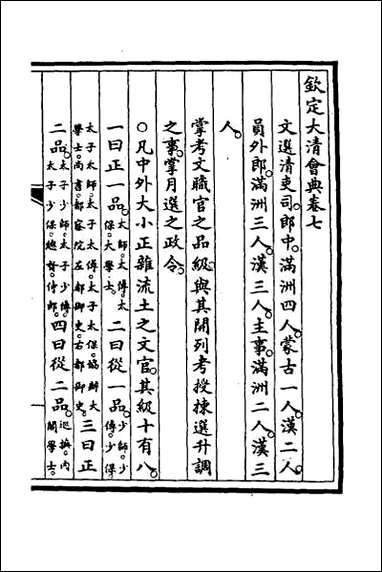 欽定大清會典卷七
文選清吏司。郎中。滿洲四人。蒙古一人。漢二人。
員外郎。滿洲三人。漢三人。主事。滿洲二人。漢三
人。
掌考文職官之品級。與其開列考授揀選升調
之事。掌月選之政令。
○凡中外大小正雜流土之文官。其級十有八。
一曰正一品。太師。太傅。太保。大學士。二曰從一品。少師。少傅。少保。
太子太師。太子太傅。太子太保。協辦大學士。尚書。都察院左都御史。右都御史。三曰正
二品。太子少師。太子少傅。太子少保。總督。侍郎。四曰從二品。巡撫。內閣學士。